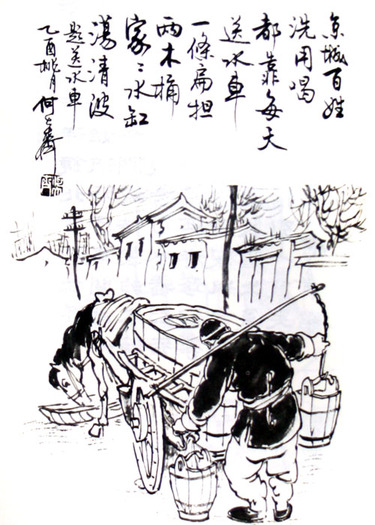 京城百姓
洗用喝
都靠每天
送水車
一條扁担
两木桶
家々水缸
蕩清波
題送水車
乙酉月何大齊